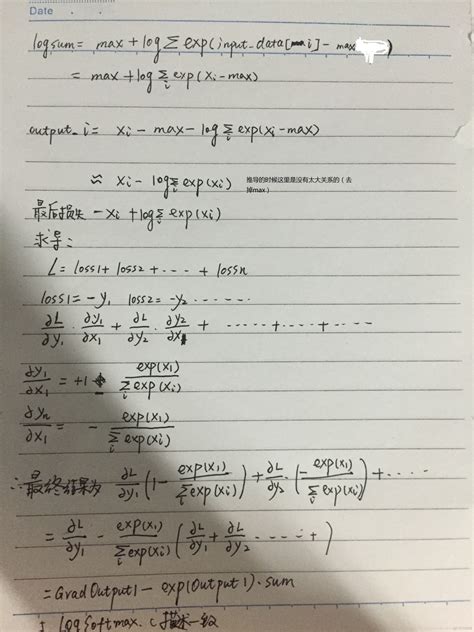 Date
logsum = max + log Σ exp(input_data[i] - max)
= max + log Σ_i exp(xi - max)
output_i = xi - max - log Σ_i exp(xi - max)
≈ xi - log Σ_i exp(xi) 推导的时候这里是没有太大关系的（去
掉max）
最后损失 - xi + log Σ_i exp(xi)
求导：
L = loss1 + loss2 + ---- + lossn
loss1 = -y1 loss2 = -y2 ------
∂L/∂y1 · ∂y1/∂x1 + ∂L/∂y2 · ∂y2/∂x1 + ----- + ---- + ----
∂y1/∂x1 = +1 - exp(x1)/Σ_i exp(xi)
∂yn/∂x1 = - exp(x1)/Σ_i exp(xi)
∴最终结果为 ∂L/∂y1 (1 - exp(x1)/Σ_i exp(xi)) + ∂L/∂y2 · (- exp(x1)/Σ_i exp(xi)) + ----
= ∂L/∂y1 - exp(x1)/Σ_i exp(xi) (∂L/∂y1 + ∂L/∂y2 ---- +)
= GradOutput1 - exp(Output1) · sum
logSoftmax.c 描述一致